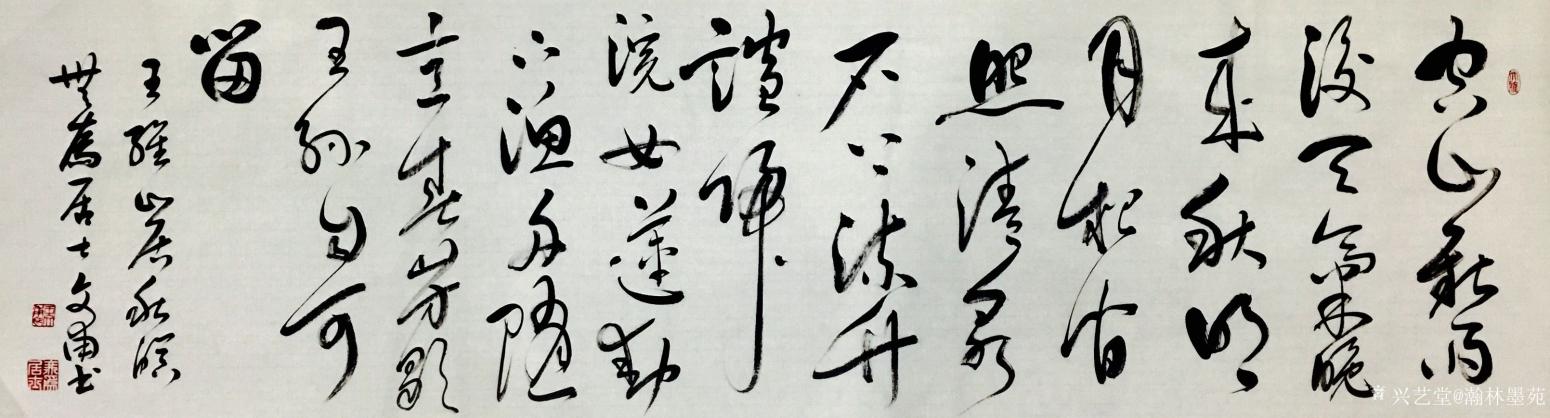 空山新雨
後天氣晚
來秋明
月松間
照清泉
石上流竹
喧歸
浣女蓮動
下漁舟隨
意春芳歇
王孫自可
留
王維山居秋暝
居士文甫书
兴艺堂@瀚林墨苑